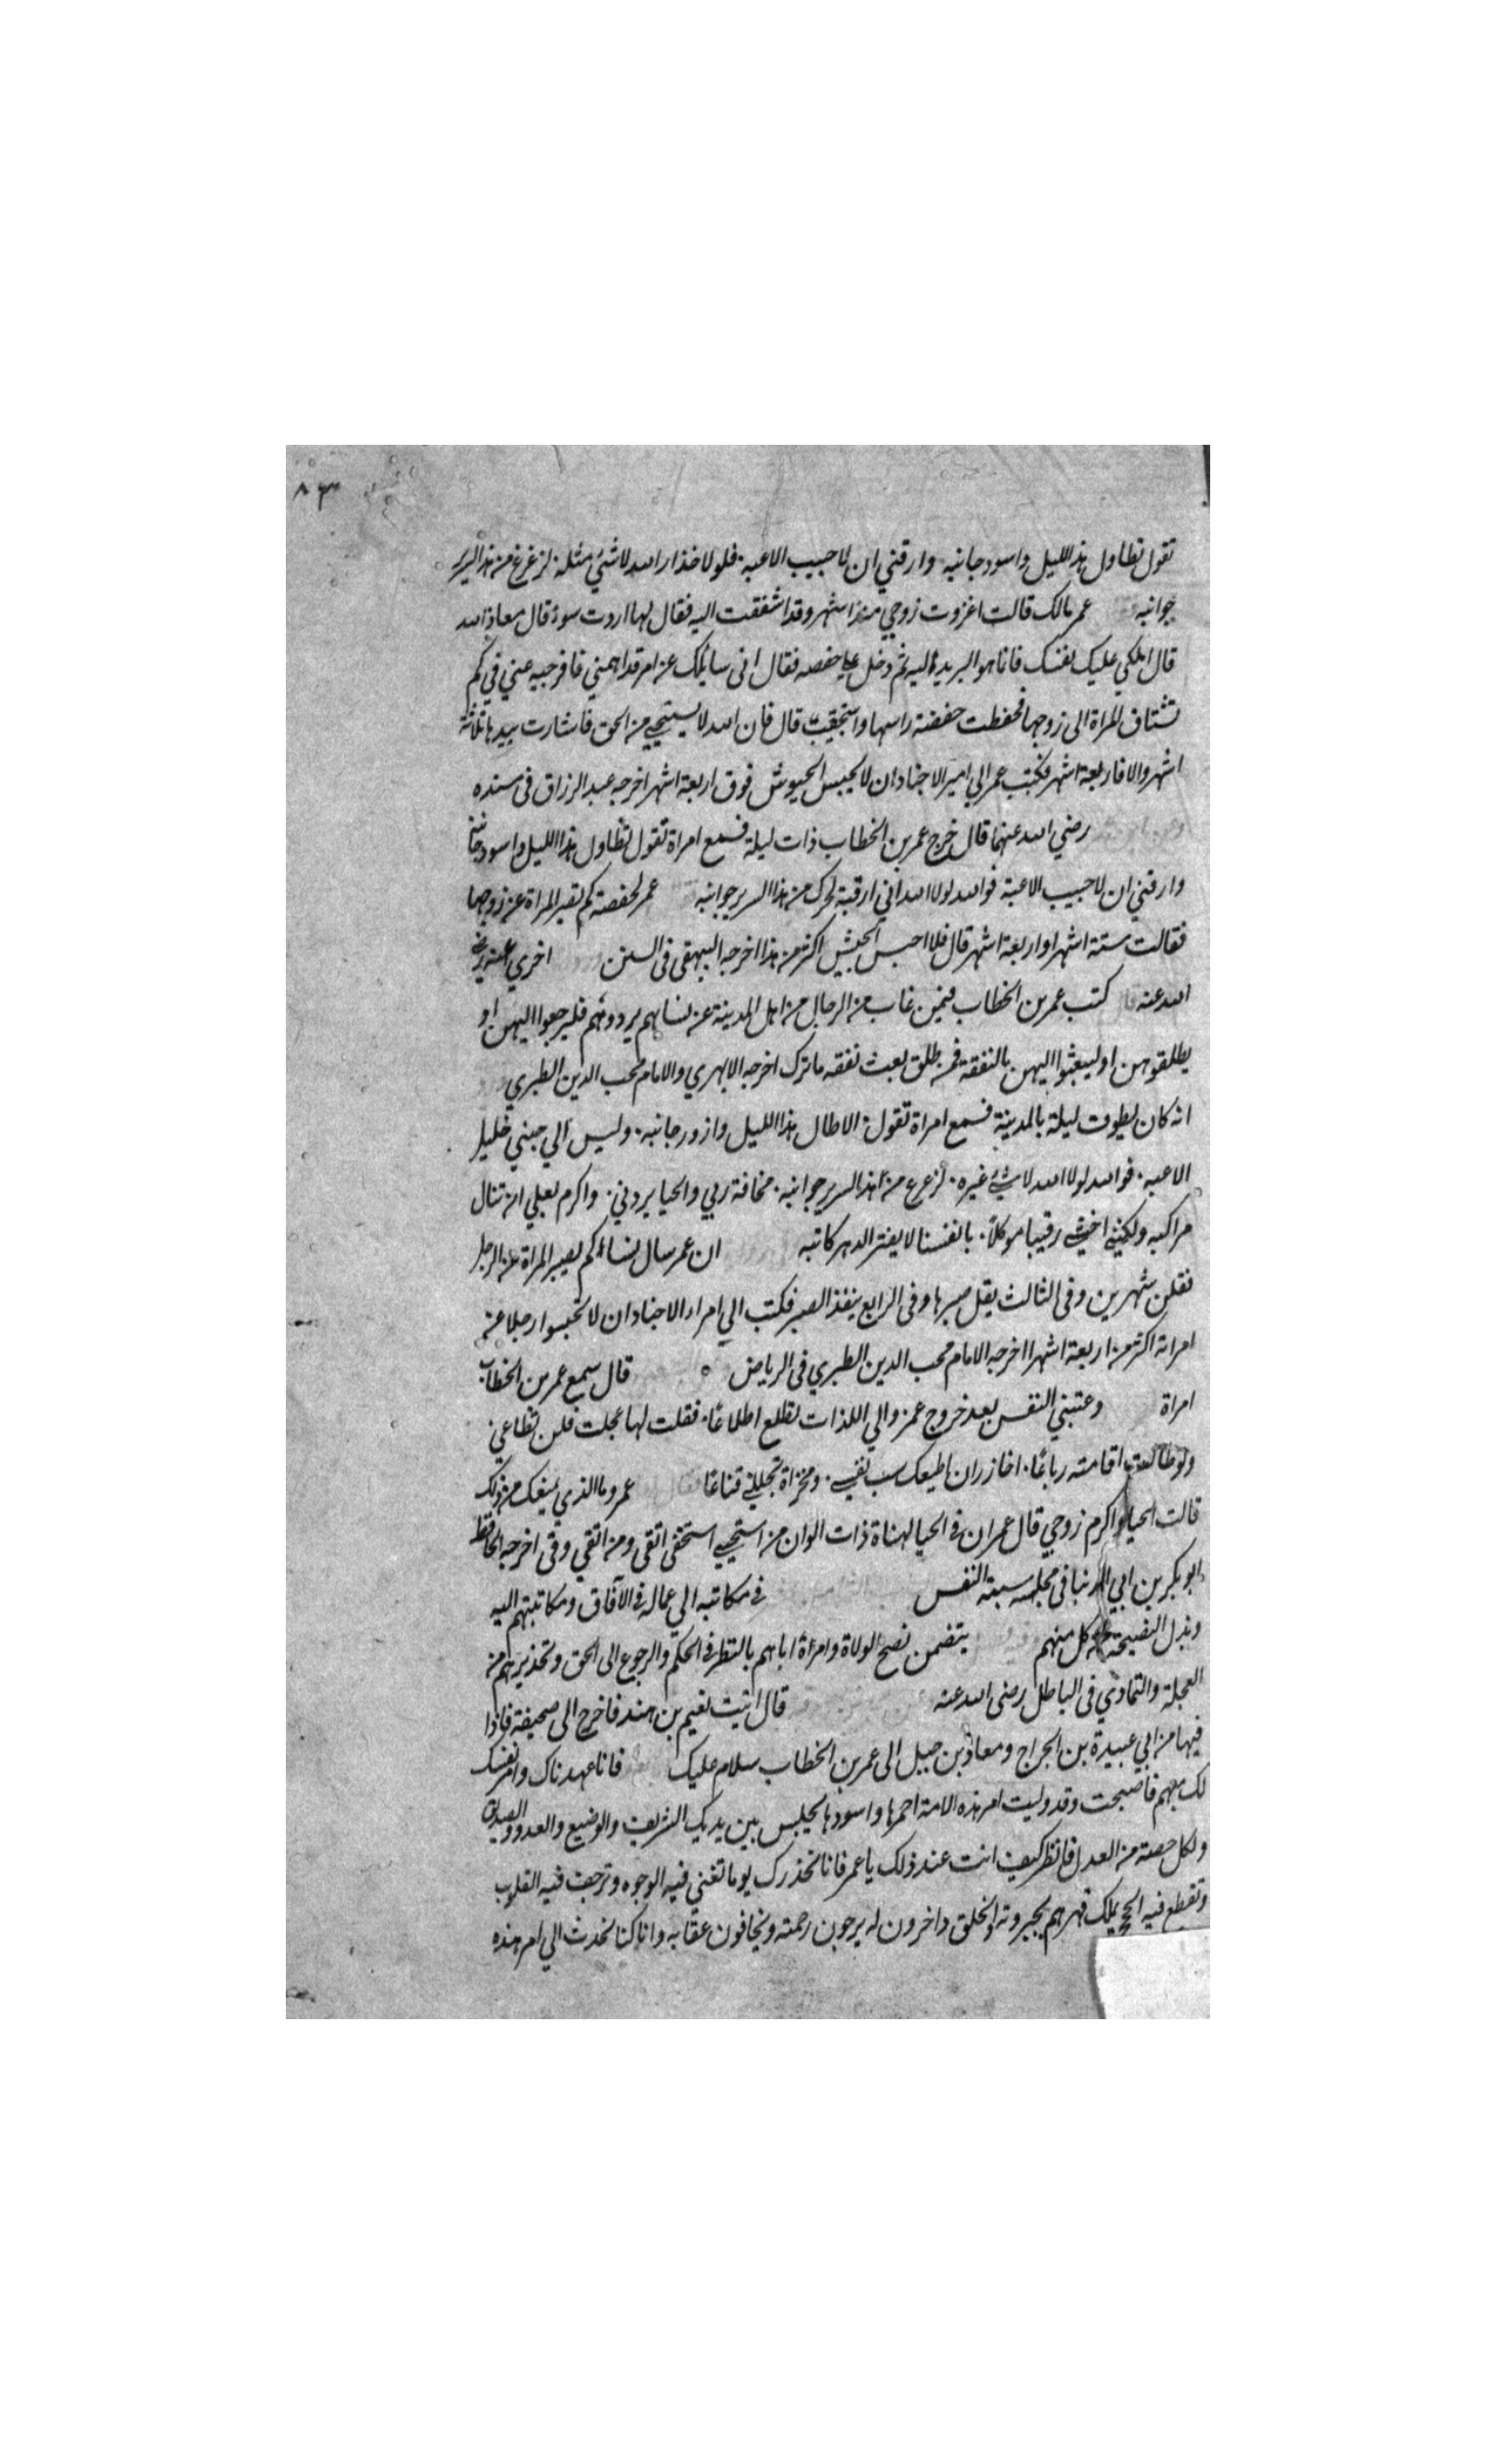 ٨٣
تقول تطاول هذا الليل واسود جانبه وارقني ان لا حبيب الاعبه فلولا حذار الله لا شئ مثله لزعزع من هذا السرير
جوانبه عمر مالك قالت اغزوت زوجي منذ اشهر وقد اشفقت اليه فقال لها اردت سوء قال معاذ الله
قال املكي عليك نفسك فانما هو البريد اليه ثم دخل على حفصه فقال اني سائلك عن امر قد اهمني فافرجيه عني في كم
تشتاق المراة الى زوجها فخفضت حفصة راسها واستحيت قال فان الله لا يستحيي من الحق فاشارت بيدها ثلاثة
اشهر والا فاربعة اشهر فكتب عمر الي امير الاجناد ان لا يحبس الجيوش فوق اربعة اشهر اخرجه عبد الرزاق في مسنده
رضي الله عنهما قال خرج عمر بن الخطاب ذات ليلة فسمع امراة تقول تطاول هذا الليل واسود جانبه
وارقني ان لا حبيب الاعبة فوالله لولا الله اني ارقبة لحرك من هذا السرير جوانبه عمر لحفصة كم تصبر المراة عن زوجها
فقالت ستة اشهر او اربعة اشهر قال فلا احبس الجيش اكثر من هذا اخرجه البيهقي في السنن اخري عنه رضي
الله عنه كتب عمر بن الخطاب فيمن غاب من الرجال من اهل المدينة عن نسائهم يردونهم فليرجعوا اليهن او
يطلقوهن او ليبعثوا اليهن بالنفقة فمن طلق بعث نفقه ما ترك اخرجه الابهري والامام محب الدين الطبري
انه كان يطوف ليلة بالمدينة فسمع امراة تقول الا طال هذا الليل وازور جانبه وليس الي جنبي خليل
الاعبه فوالله لولا الله لا شئ غيره لزعزع من هذا السرير جوانبه مخافة ربي والحيا يردني واكرم بعلي ان تنال
مراكبه ولكني اخشي رقيبا موكلا بانفسنا لا يفتر الدهر كاتبه ان عمر سال نساء كم يصبر المراة عن الرجل
فقلن شهرين وفي الثالث يقل صبرها وفي الرابع ينفذ الصبر فكتب الي امراء الاجناد ان لا تحبسوا رجلا عن
امراته اكثر من اربعة اشهر اخرجه الامام محب الدين الطبري في الرياض قال سمع عمر بن الخطاب
امراة دعتني النفس بعد خروج عمرو الي اللذات تطلع اطلاعا فقلت لها عجلت فلن تطاعي
ولو طالت اقامته رباعا احاذر ان اطيعك سب نفسي ومخزاة تجللني قناعا عمر وما الذي يمنعك من ذلك
قالت الحيا واكرم زوجي قال عمر ان في الحيا لهناة ذات الوان من استحيي استخفى اتقى ومن اتقي وقى اخرجه الحافظ
ابو بكر بن ابي الدنيا في مجلسه سبته النفس في مكاتبه الي عماله في الآفاق ومكاتبتهم اليه
وبذل النصيحة كل منهم يتضمن نصح الولاة وامراة اباهم بالنظر في الحكم والرجوع الى الحق وتحذيرهم من
العجلة والتمادي في الباطل رضي الله عنه قال اتيت نعيم بن هند فاخرج الى صحيفة فاذا
فيها من ابي عبيدة بن الجراح ومعاذ بن جبل الى عمر بن الخطاب سلام عليك فانا عهدناك وامر نفسك
لك مهم فاصبحت وقد وليت امر هذه الامة احمرها واسودها يجلس بين يديك الشريف والوضيع والعدو والصديق
ولكل حصته من العدل فانظر كيف انت عند ذلك يا عمر فانا نحذرك يوما تعني فيه الوجوه وترجف فيه القلوب
وتقطع فيه الحجج بملك قهرهم بجبروته والخلق داخرون له يرجون رحمته ويخافون عقابه وانا كنا نحدث الي امر هذه